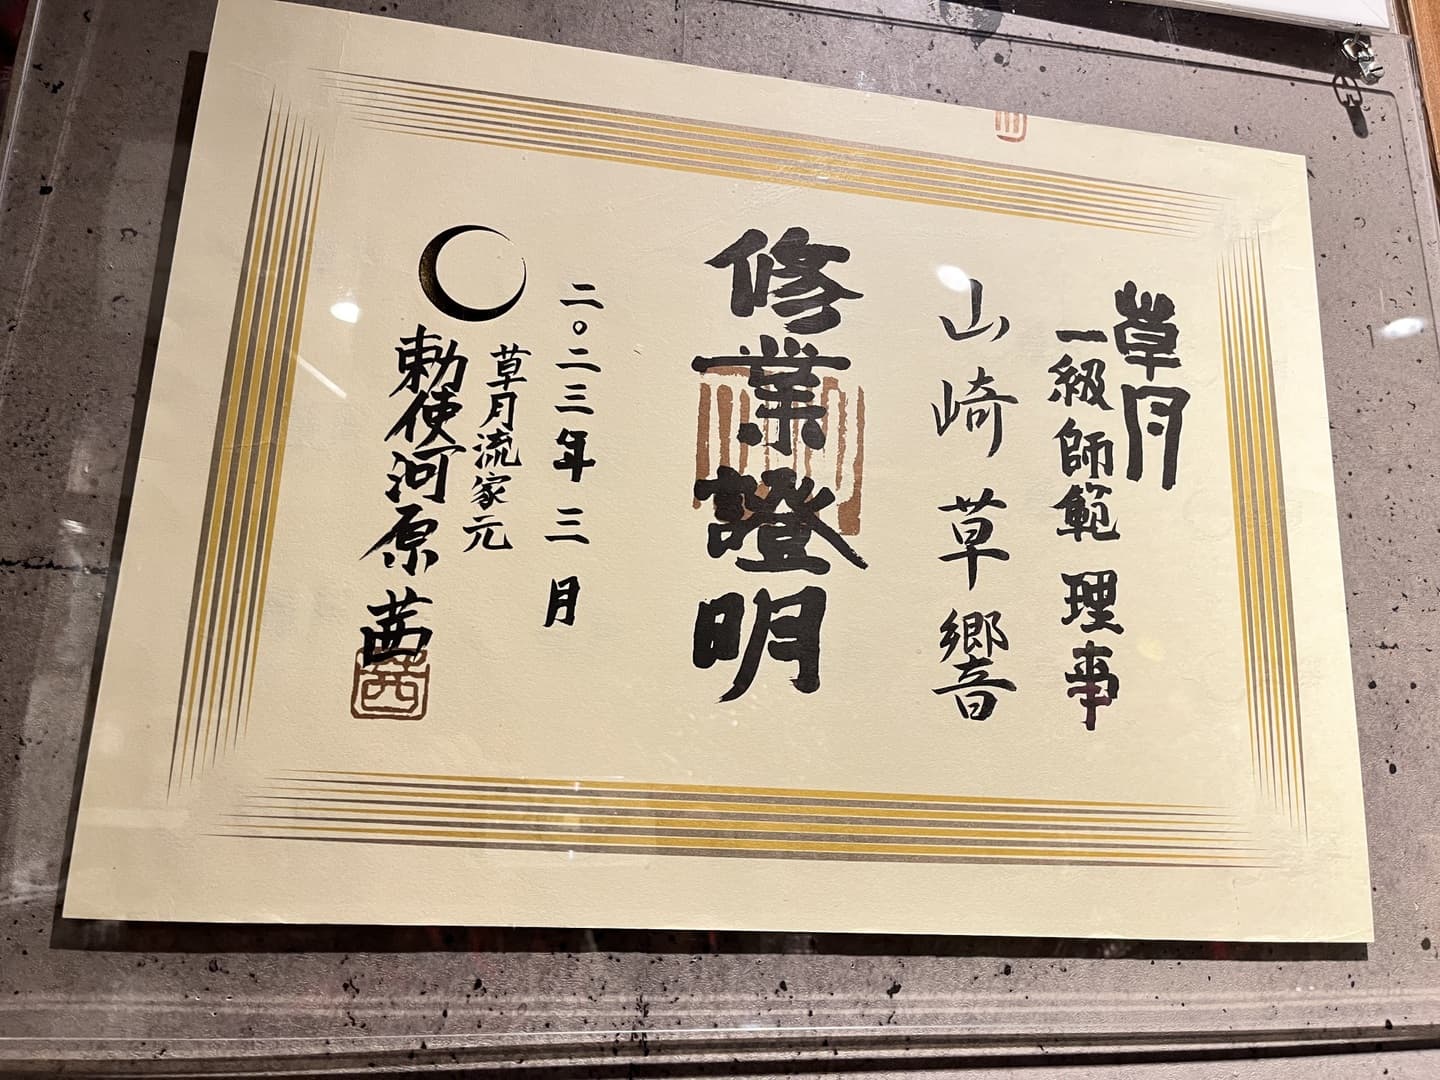 草月
一級師範理事
山崎草響
修業證明
二〇二三年三月
草月流家元
勅使河原茜
茜